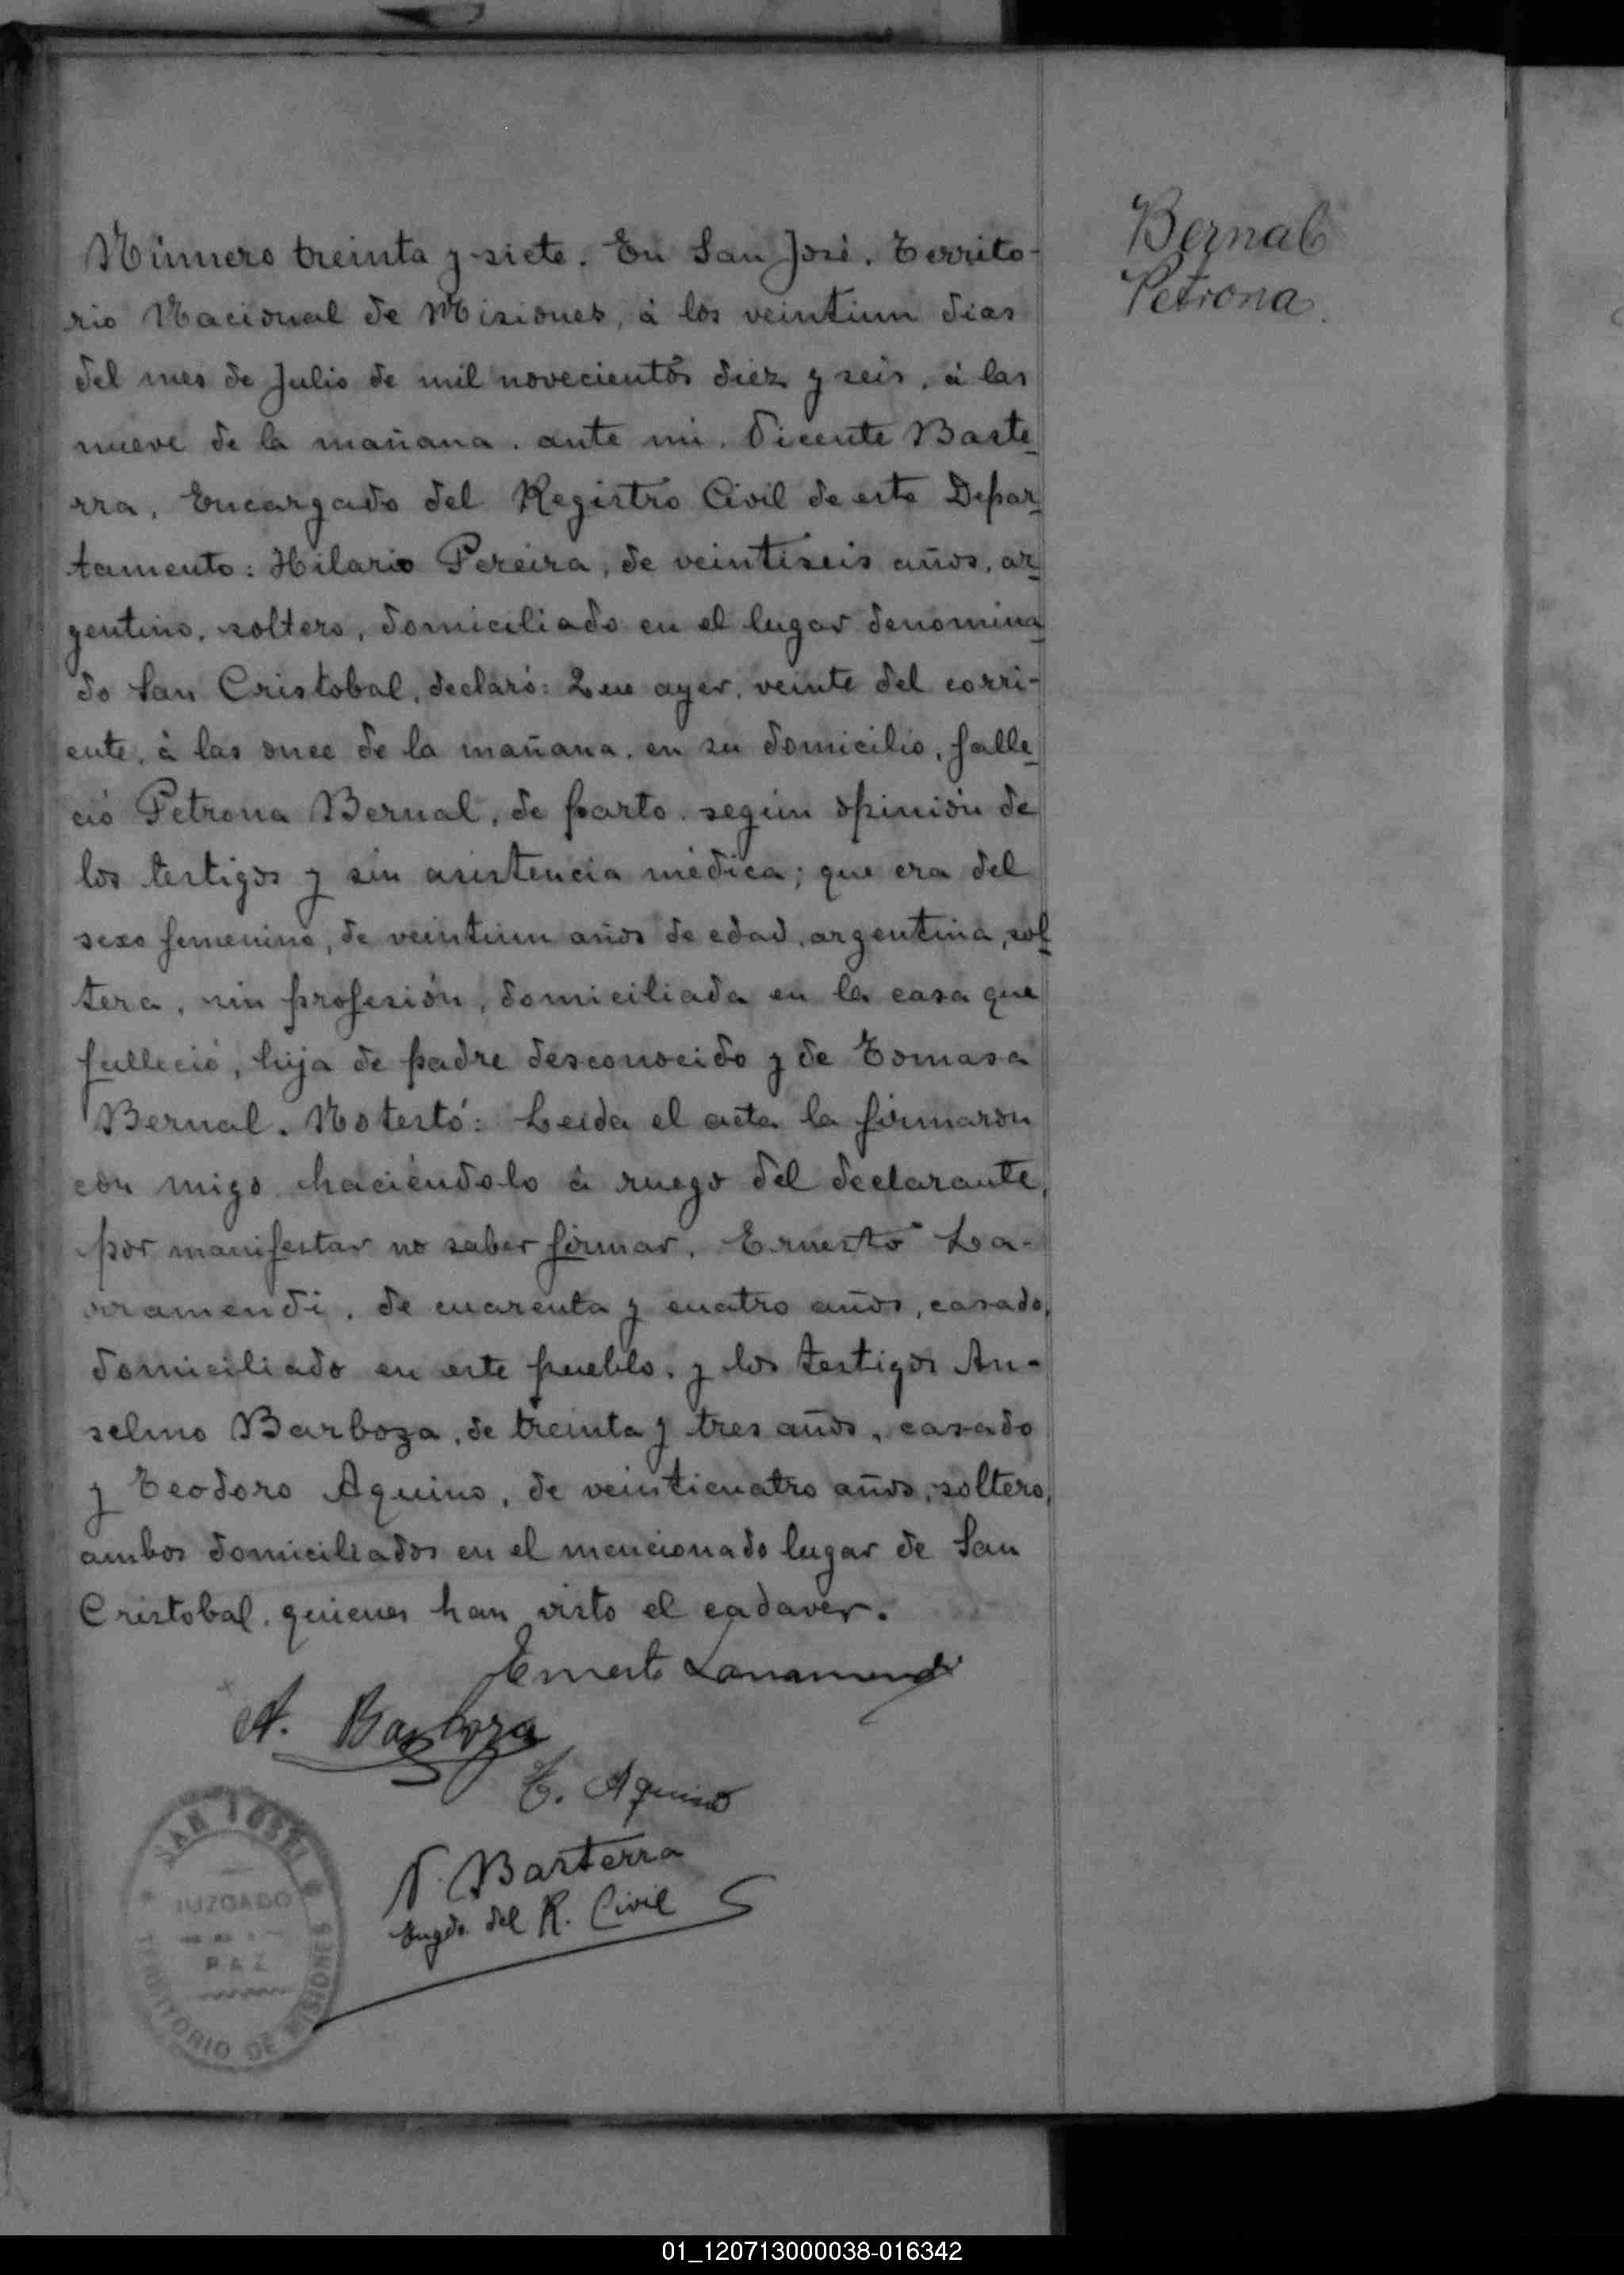 Bernal
Petrona.
Número treinta y siete. En San José, Territo-
rio Nacional de Misiones, á los veintiun dias
del mes de Julio de mil novecientos diez y seis, á las
nueve de la mañana, ante mi, Vicente Baste
rra, Encargado del Registro Civil de este Depar
tamento: Hilario Pereira, de veintiseis años, ar
gentino, soltero, domiciliado en el lugar denomina
do San Cristobal, declaró: Que ayer, veinte del corri-
ente, á las once de la mañana, en su domicilio, falle
ció Petrona Bernal, de parto, según opinión de
los testigos y sin asistencia médica; que era del
sexo femenino, de veintiun años de edad, argentina, sol
tera, sin profesión, domiciliada en la casa que
falleció, hija de padre desconocido y de Tomasa
Bernal. No testó: Leida el acta la firmaron
con migo, haciéndolo á ruego del declarante,
por manifestar no saber firmar, Ernesto La-
rramendi, de cuarenta y cuatro años, casado,
domiciliado en este pueblo, y los testigos An-
selmo Barboza, de treinta y tres años, casado
y Teodoro Aquino, de veinticuatro años, soltero,
ambos domiciliados en el mencionado lugar de San
Cristobal, quienes han visto el cadaver.
Ernesto Larramendi
A. Barboza
T. Aquino
V. Basterra
Engdo. del R. Civil
SAN JOSE
JUZGADO
DE
PAZ
TERRITORIO DE MISIONES
01_120713000038-016342